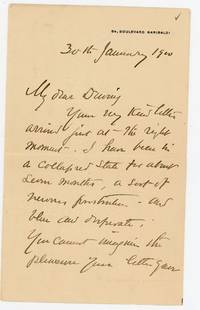 84, BOULEVARD GARIBALDI
30th January 1900
My dear
Your very kind letter
arrived just at the right
moment. I have been in
a collapsed state for about
months, a sort of
nervous prostration - and
blue and desperate;
You cannot imagine the
pleasure your letter gave